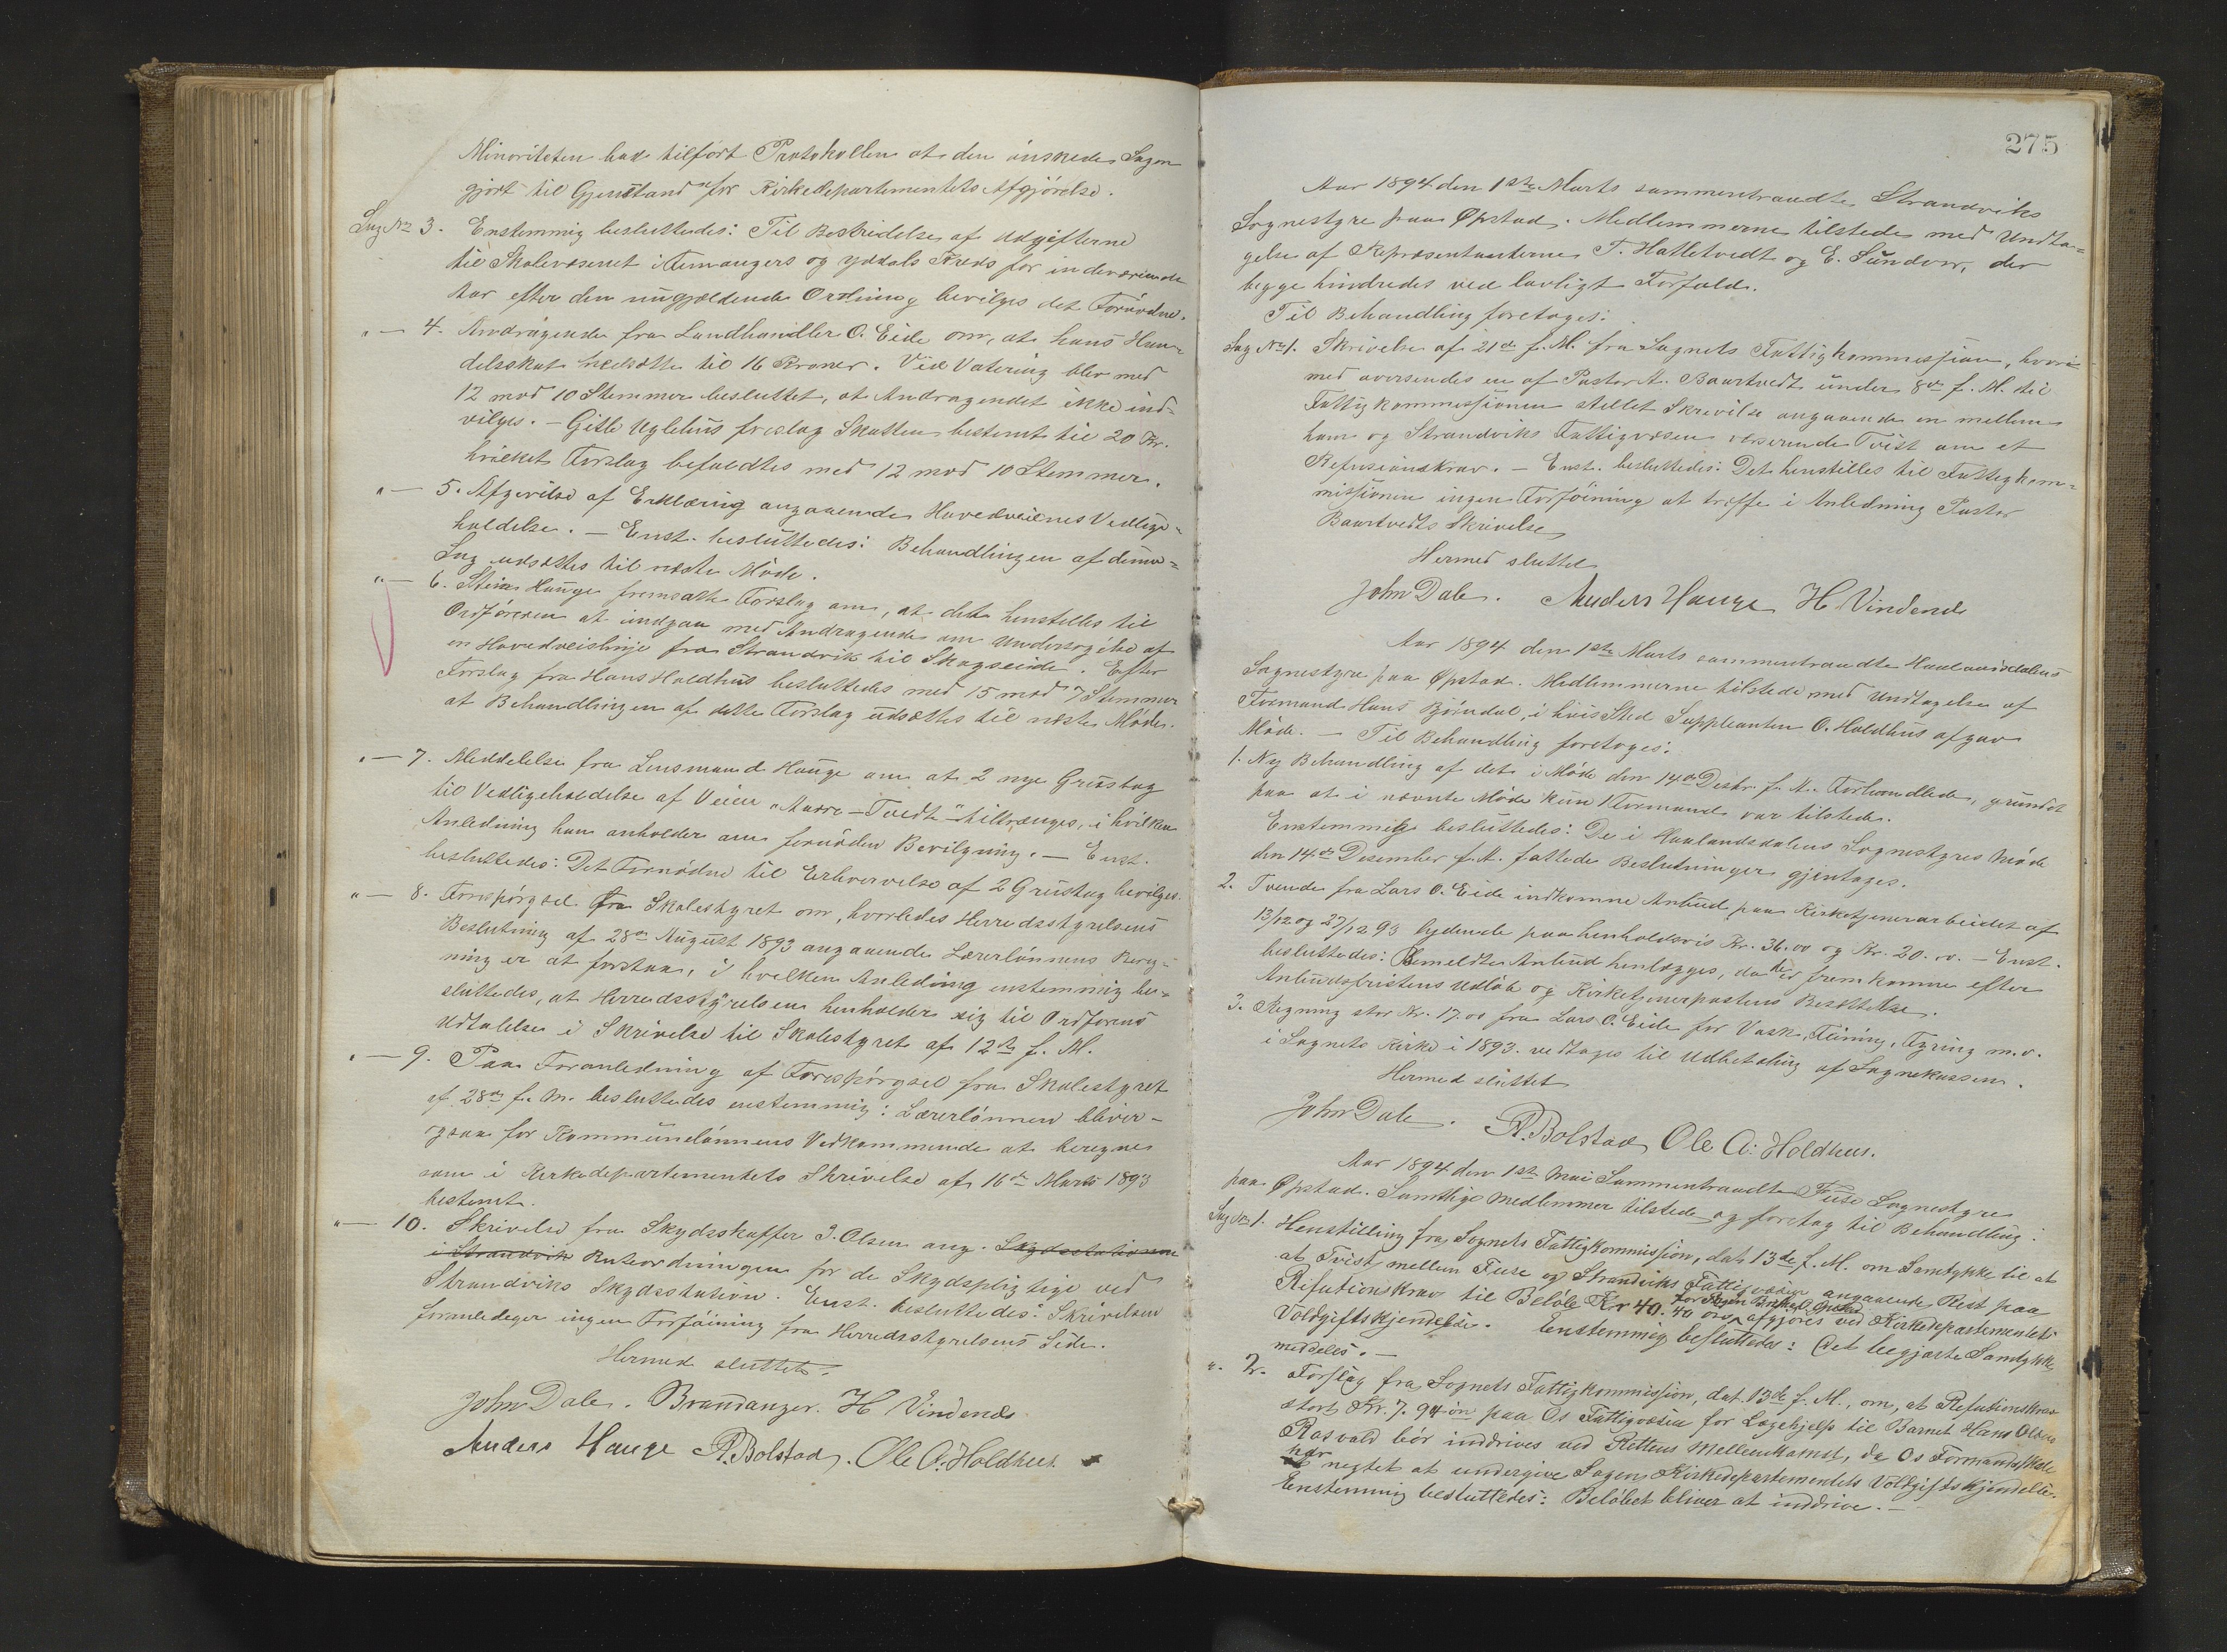 Minoriteten had tilført Protokollen at den ønskede Sagen
gjort til Gjenstand for Kirkedepartementets Afgjørelse.
Sag No 3. Enstemmig besluttedes: Til Bestridelse af Udgifterne
til Skolevæsenet i Aennangers og Yddals Kreds for indeværende
Aar efter den nugjældende Ordning bevilges det Fornødne.
"— 4. Andragende fra Landhandler O. Eide om, at hans Han-
delsskat nedsættes til 16 Kroner. Ved Votering blev med
12 mod 10 Stemmer besluttet, at Andragendet ikke ind-
vilges. — Gitle Uglehus foreslog Skatten bestemt til 20 Kr.
hvilket Forslag bifaldtes med 12 mod 10 Stemmer.
"— 5. Afgivelse af Erklæring angaaende Hovedveienes Vedlige-
holdelse. — Enst. besluttedes: Behandlingen af denne
Sag udsættes til næste Møde.
"— 6. Hauge fremsatte Forslag om, at det henstilles til
Ordføreren at indgaa med Andragende om Undersøgelse af
en Hovedveislinje fra Strandvik til Skogseide. Efter
Forslag fra Hans Holdhus besluttedes med 15 mod 7 Stemmer
at Behandlingen af dette Forslag udsættes til næste Møde.
"— 7. Meddelelse fra Lensmand Hauge om at 2 nye Grustag
til Vedligeholdelse af Veien "— Tvedt" tiltrænges, i hvilken
Anledning han anholder om fornøden Bevilgning. — Enst.
besluttedes: Det Fornødne til Erhvervelse af 2 Grustag bevilges.
"— 8. Forespørgsel fra Skolestyret om, hvorledes Herredsstyrelsens
Beslutning af 28de August 1893 angaaende Lærerlønnens Bereg-
ning er at forstaa, i hvilken Anledning enstemmig be-
sluttedes, at Herredsstyrelsen henholder sig til Ordførens
Udtalelse i Skrivelse til Skolestyret af 12te f. M.
"— 9. Paa Foranledning af Forespørgsel fra Skolestyret
af 28de f. M. besluttedes enstemmig: Lærerlønnen bliver
ogsaa for Kommunelønnens Vedkommende at beregnes
som i Kirkedepartementets Skrivelse af 16de Marts 1893
bestemt.
"— 10. Skrivelse fra Skydsskaffer J. Olsen ang. Skydsstationen
i Strandvik Ruteordningen for de Skydspligtige ved
Strandviks Skydsstation. Enst. besluttedes: Skrivelsen
foranlediger ingen Forføining fra Herredsstyrelsens Side.
Hermed sluttet.
John Dale. Brandanger. H Vindenes
Anders Hauge A. Bolstad. Ole A. Holdhus.
275
Aar 1894 den 1ste Marts sammentraadte Strandviks
Sognestyre paa Opstad. Medlemmerne tilstede med Undta-
gelse af Repræsentanterne T. Hatletvedt og E. Sundvor, der
begge hindredes ved lovligt Forfald.
Til Behandling foretoges:
Sag No 1. Skrivelse af 21de f. M. fra Sognets Fattigkommission, hvori
med oversendes en af Pastor A. Baartvedt under 8de f. M. til
Fattigkommissionen stillet Skrivelse angaaende en mellem
ham og Strandviks Fattigvæsen værserende Tvist om et
Refusionskrav. — Enst. besluttedes: Det henstilles til Fattigkom-
missionen ingen Forføining at træffe i Anledning Pastor
Baartvedts Skrivelse
Hermed sluttet
John Dale. Anders Hauge H Vindenes
Aar 1894 den 1ste Marts sammentraadte Haalandsdalens
Sognestyre paa Opstad. Medlemmerne tilstede med Undtagelse af
Formand Hans Bjørndal, i hvis Sted Suppleanten O. Holdhus afgav
Møde. — Til Behandling foretoges:
1. Ny Behandling af det i Møde den 14de Desbr. f. A. Forhandlede, grundet
paa at i nævnte Møde kun 1 Formand var tilstede.
Enstemmig besluttedes: De i Haalandsdalens Sognestyres Møde
den 14de Desember f. A. fattede Beslutninger gjentages.
2. Tvende fra Lars O. Eide indkomne Anbud paa Kirketjenerarbeidet af
13/12 og 27/12 93 lydende paa henholdsvis Kr. 36.00 og Kr. 20.00. — Enst.
besluttedes: Bemeldte Anbud henlægges, da de er fremkomne efter
Anbudsfristens Udløb og Kirketjenerpostens Besættelse.
3. Regning stor Kr. 17.00 fra Lars O. Eide for Vask, Fyring m. v.
i Sognets Kirke i 1893. vedtages til Udbetaling af Sognekassen.
Hermed sluttet
John Dale. A. Bolstad Ole A. Holdhus.
Aar 1894 den 1ste Mai Sammentraadte Fuse Sognestyre
paa Opstad. Samtlige Medlemmer tilstede og foretog til Behandling:
Sag No 1. Henstilling fra Sognets Fattigkommission, dat. 13de f. M. om Samtykke til at
at Tvist mellem Fuse og Strandviks Fattigvæsen angaaende Rest paa
Refutionskrav til Beløb Kr 40.40 øre afgjøres ved Kirkedepartementets
Voldgiftskjendelse. Enstemmig besluttedes: Det begjærte Samtykke
meddeles. —
". 2. Forslag fra Sognets Fattigkommission, dat. 13de f. M., om, at Refutionskrav
stort Kr. 7.94 øre paa Os Fattigvæsen for Lægehjelp til Barnet Hans Olsen
Rosvold bør inddrives ved Rettens Mellemkomst, da Os Formandskab
har negtet at undergive Sagen Kirkedepartementets Voldgiftskjendelse.
Enstemmig besluttedes: Beløbet bliver at inddrive. —